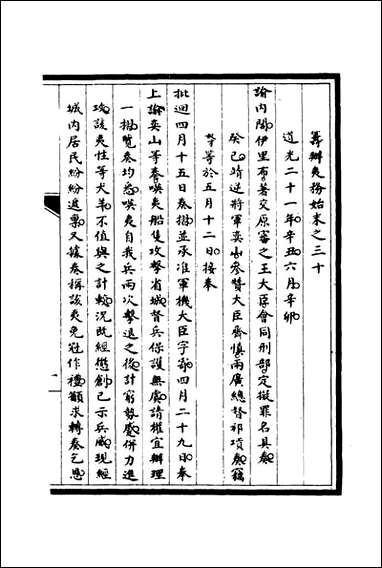 籌辦夷務始末之三十
道光二十一年辛丑六月辛卯
諭內閣伊里布著交原審之王大臣會同刑部定擬罪名具奏
癸巳靖逆將軍奕山參贊大臣齊慎兩廣總督祁𡎴奏竊
等於五月十二日接奉
批迴四月十五日奏摺並承准軍機大臣字寄四月二十九日奉
上諭奕山等奏喚夷船隻攻擊省城督兵保護無虞請權宜辦理
一摺覽奏均悉喚夷自我兵兩次擊退之後計窮勢蹙併力進
攻該夷性等犬羊不值與之計較況既經懲創已示兵威現經
城內居民紛紛遞稟又據奏稱該夷免冠作禮籲求轉奏乞恩